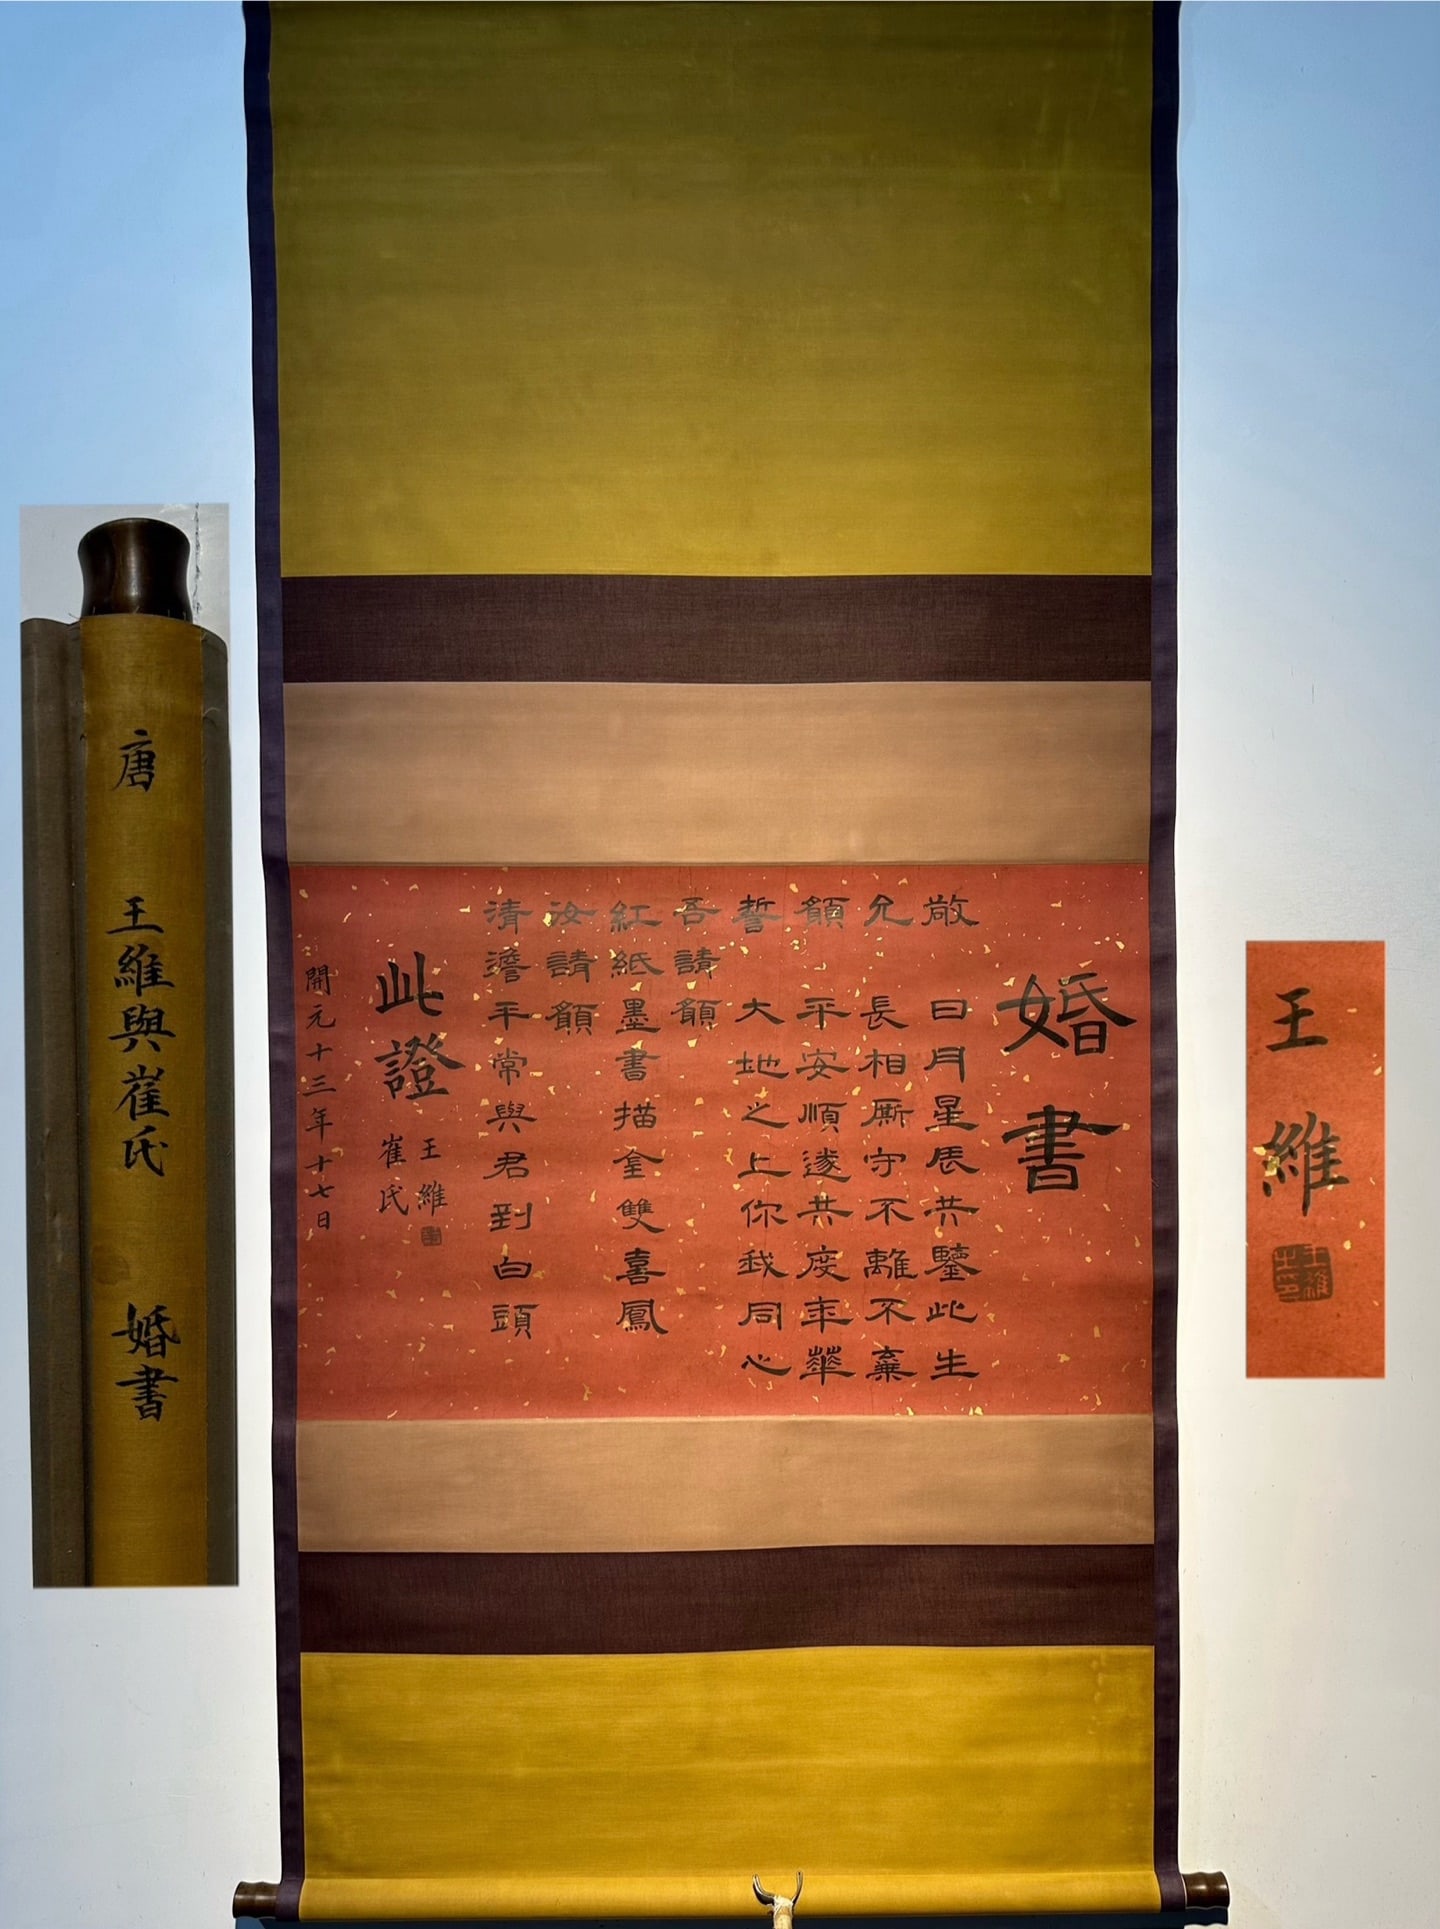 唐
王維與崔氏
婚書
婚書
敬 日月星辰共鑒此生
允 長相厮守不離不棄
額 平安順遂共度年華
誓 大地之上你我同心
吾請額
紅紙墨書描金雙喜鳳
汝請額
清澹平常與君到白頭
此證
王維
崔氏
開元十三年十七日
王維
王維之印